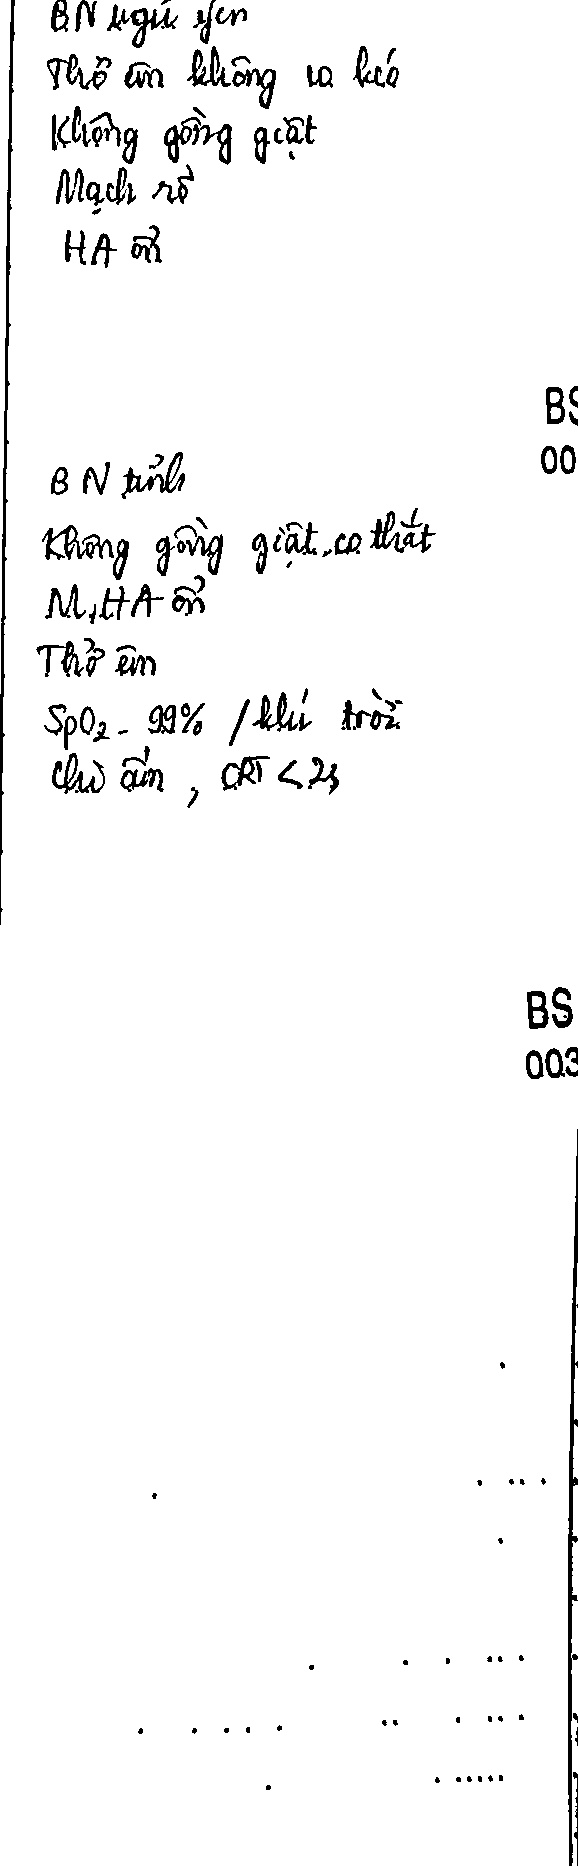 BN ngủ yên
Thở êm không co kéo
Không gồng giật
Mạch rõ
HA ổn
BS
00
BN tỉnh
Không gồng giật, co thắt
M, HA ổn
Thở êm
SpO2 - 99% / khí trời
Chi ấm, CRT < 2s
BS
003